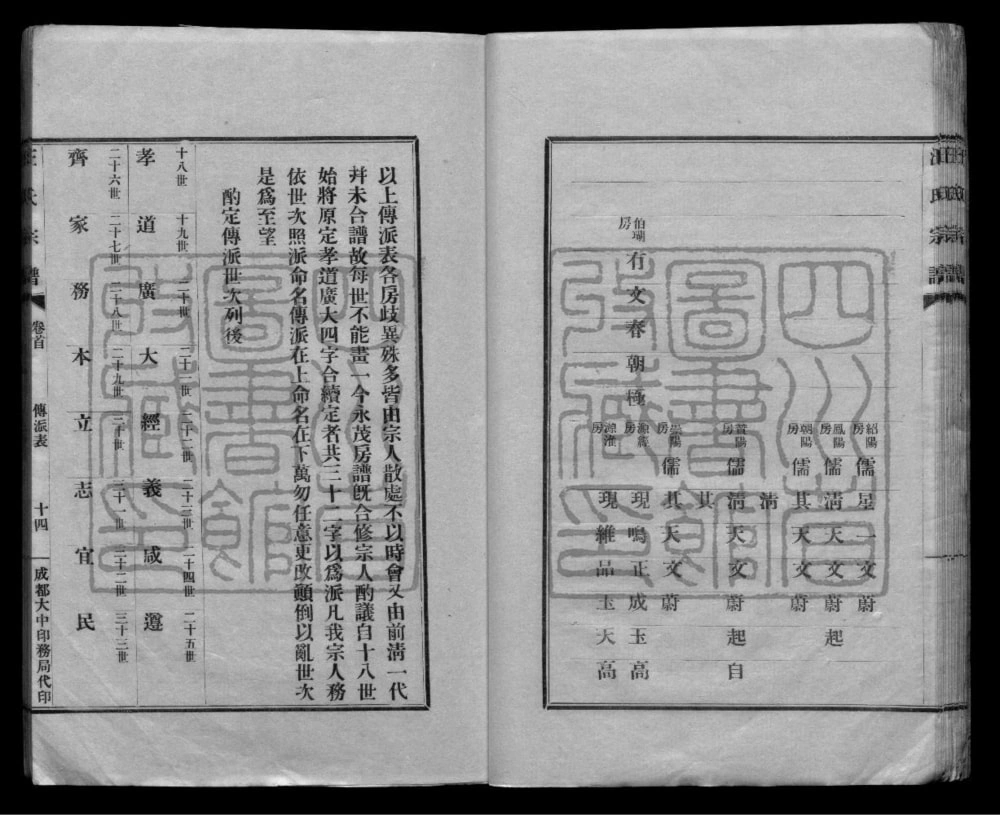 伯瑚房有文春朝極
紹陽房儒星一文蔚
鳳陽房儒清天文蔚起
朝陽房儒其天文蔚
清
儒清天文蔚起自
其
崇陽房儒其天文蔚
房現鳴正成玉高
源淮房現維品玉天高
以上傳派表各房歧異殊多皆由宗人散處不以時會又由前清一代
并未合譜故每世不能畫一今永茂房譜既合修宗人酌議自十八世
始將原定孝道廣大四字合續定者共三十二字以為派凡我宗人務
依世次照派命名傳派在上命名在下萬勿任意更改顛倒以亂世次
是為至望
酌定傳派世次列後
十八世 十九世 二十世 二十一世 二十二世 二十三世 二十四世 二十五世
孝 道 廣 大 經 義 咸 遵
二十六世 二十七世 二十八世 二十九世 三十世 三十一世 三十二世 三十三世
齊 家 務 本 立 志 宜 民
氏宗譜 卷首 傳派表 十四 成都大中印務局代印
四川省圖書館收藏印